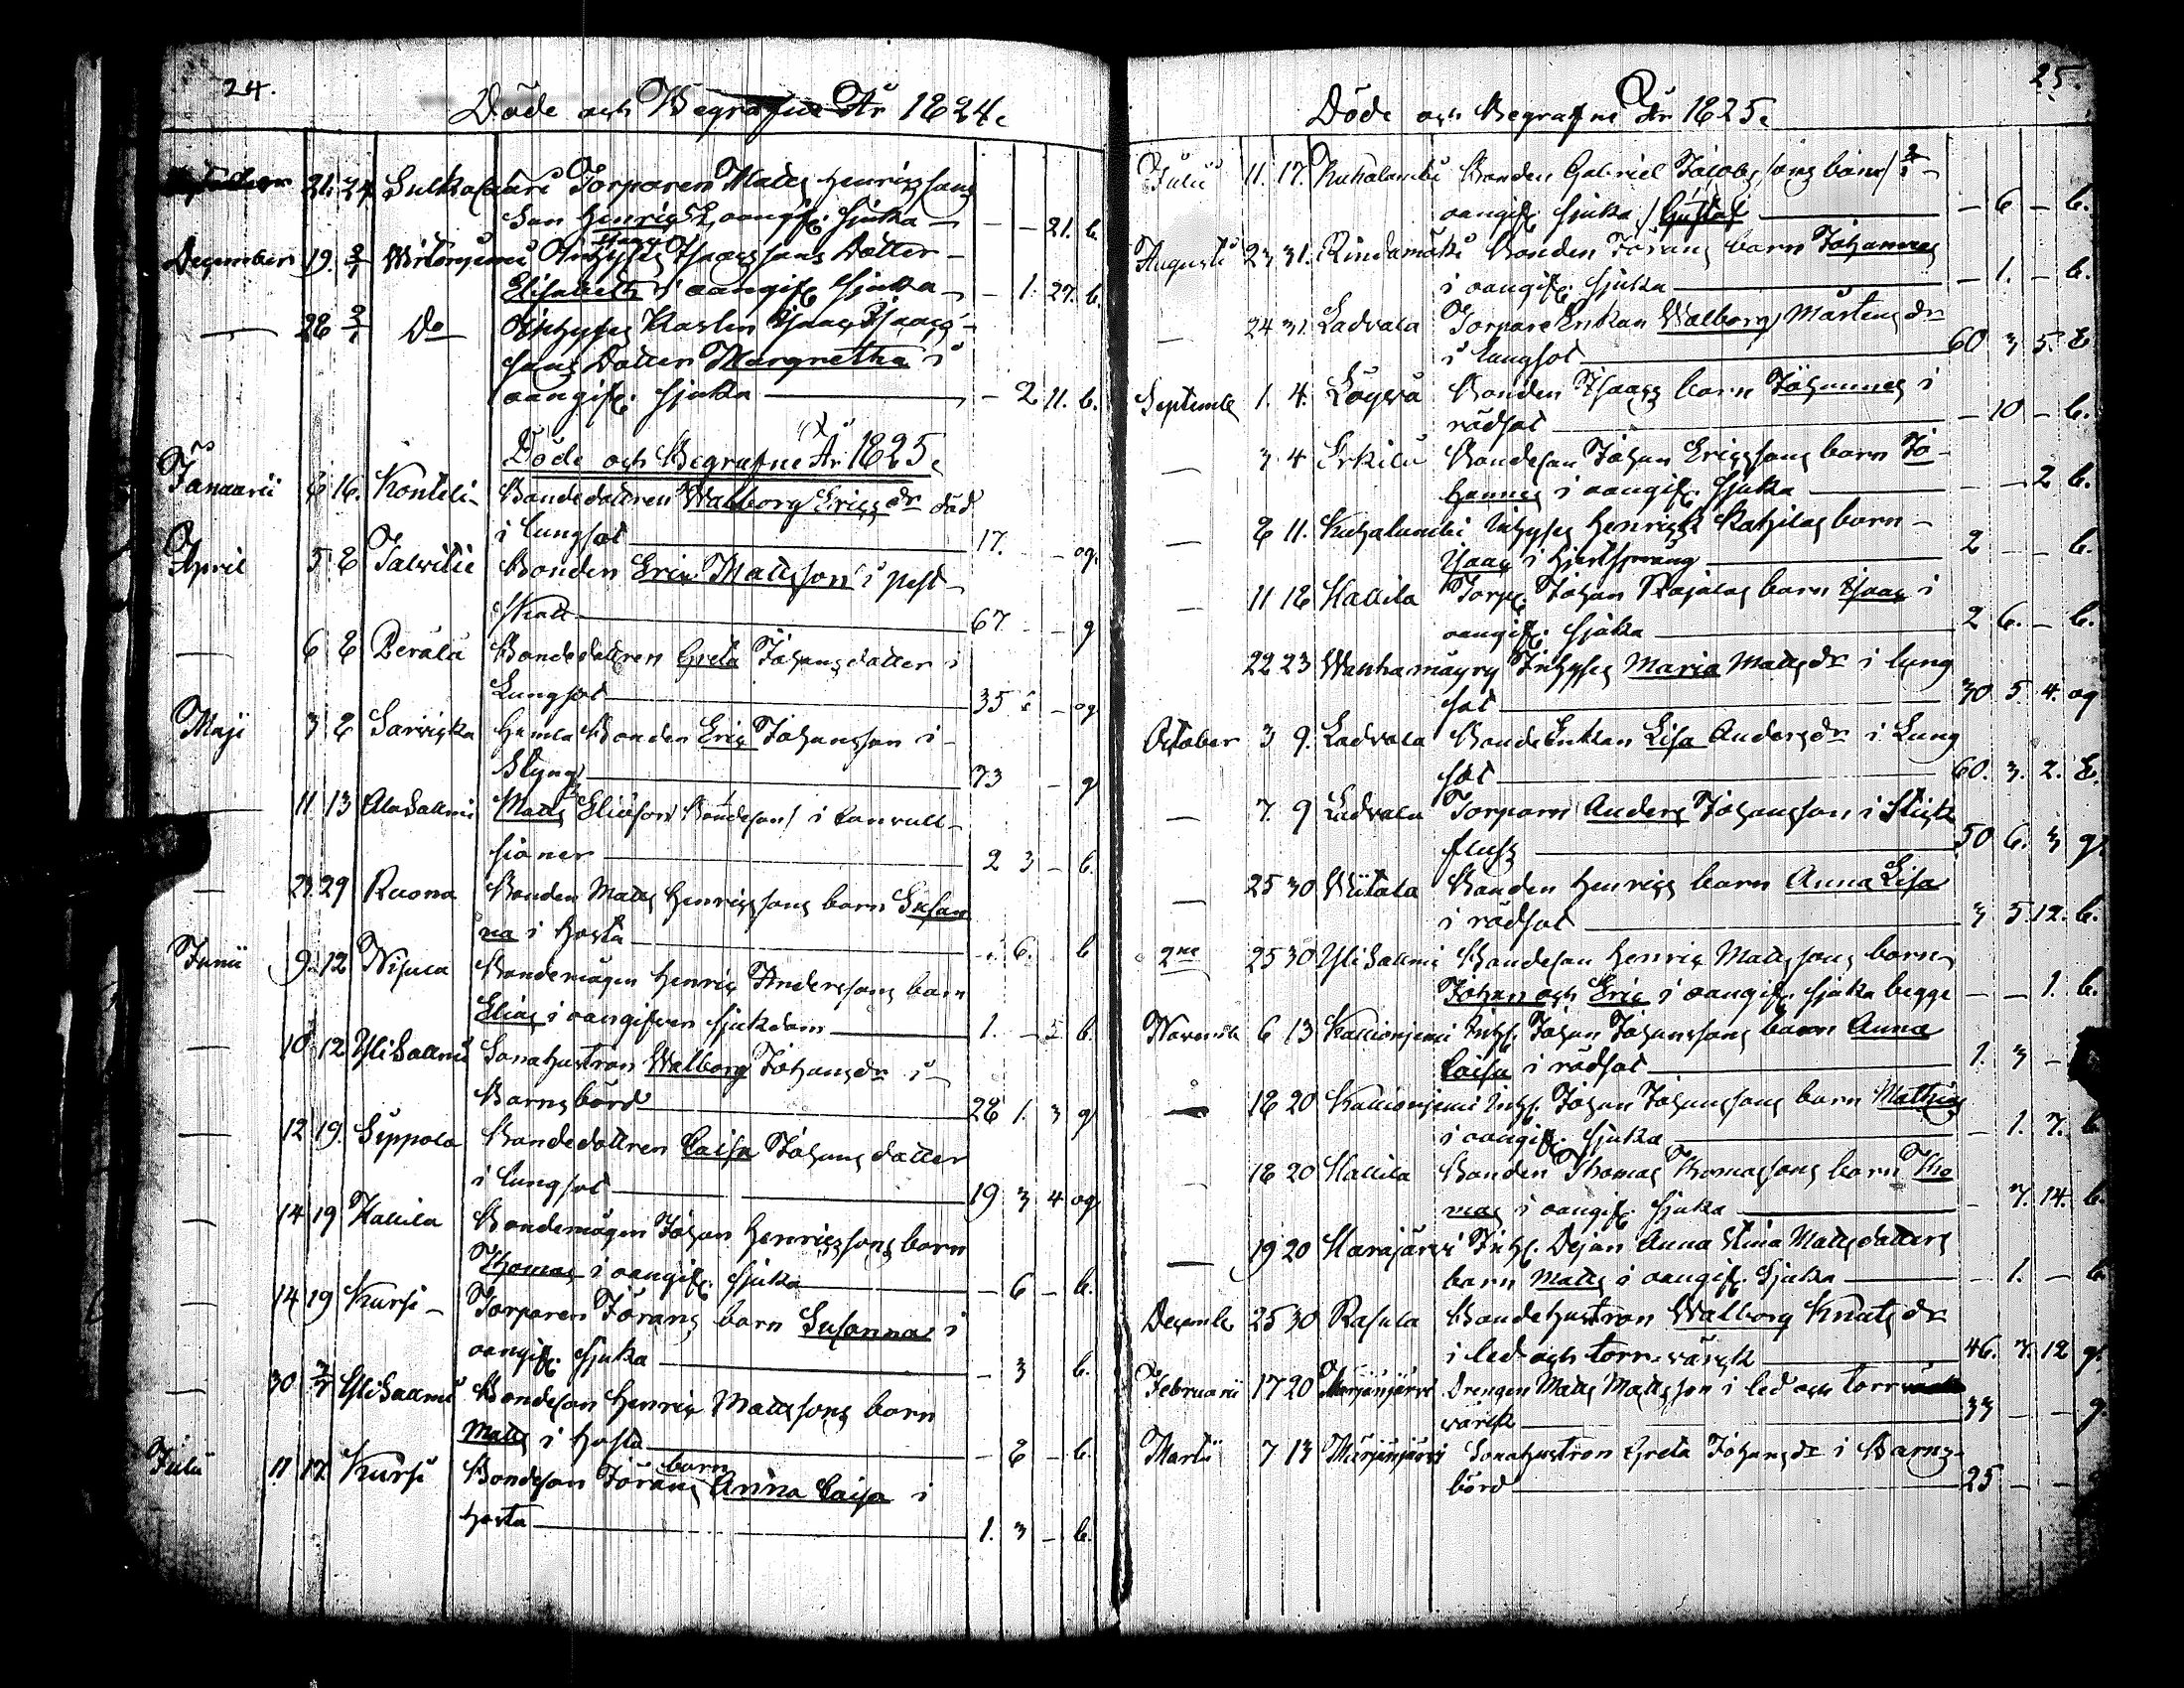 24.
Döde och Begrafne År 1824.
21. 24 Sulkakuri Torparen Matts Henrikssons
Son Henrik i oangif. sjuka — — 21. b.
December 19. 2/1 Wirtaniemi Inhyses Isaacssons Dotter
Elisabeth i oangif. sjuka — 1. 27. b.
— 28 2/1 Do Inhyses Karlen Isaac Isaacs-
sons Dotter Margretha i
oangif. sjuka — 2 11. b.
Döde och Begrafne År 1825.
Januarii 6 16. Kontili Bondedottren Walborg Ericsdr död
i lungsot 17. — — og.
April 5 8 Talvitie Bonden Eric Mattsson i pest-
67. — — g
— 6 8 Perälä Bondedottren Greta Johansdotter i
Lungsot 35 — — og
Maji 3 8 Sarvikka Gamla Bonden Eric Johansson i
Styng 73 — g
— 11 13 Ala Sallmi Matts Eliasson Bondeson i convull-
sioner 2 3 — b.
— 23 29 Ruona Bonden Matts Henrikssons barn Susan
na i hosta — 6. b
Junii 9 12 Nisula Bondemågen Henric Anderssons barn
Elias i oangifven sjukdom 1. — 5 b.
— 10 12 Yli Sallmi Sonahustron Walborg Johansdr i
Barnsbörd 28 1. 3 g
— 12 19. Seppälä Bondedottren Caisa Johans dotter
i lungsot 19 3 4 og
— 14 19 Hallila Bondemågen Johan Henrikssons barn
Thomas i oangif. sjuka — 6 — b.
— 14 19 Kursi Torparen Görans barn Susanna i
oangif. sjuka — 3 b.
— 30 3/7 Yli Sallmi Bondeson Henric Mattssons barn
Matts i hosta — 8 — b.
Julii 11 17 Kursi Bondeson Görans barn Anna Caisa i
hosta 1. 3 — b.
25.
Döde och Begrafne År 1825.
Julii 11. 17. Kuhalambi Bonden Gabriel Jacobssons barn i
oangif. sjuka / Gustaf — 6 — b.
Augusti 23 31. Rindamäki Bonden Görans barn Johannes
i oangif. sjuka — 1. — b.
— 24 31 Ladvala Torpare Enkan Walborg Mårtensdr
i lungsot 60 3 5. E
Septemb. 1. 4. Bonden Isaacs barn Johannes i
rödsot — 10 — b.
— 3 4 Erkilä Bondeson Johan Ericssons barn Jo-
hannes i oangif. sjuka — — 2 b.
— 8 11. Kuhalambi Inhyses Henrik barn
Isaac i hjertsprång 2 — — b.
— 11 18 Hallila Torp. Johan Rajalas barn Isaac i
oangif. sjuka 2 6. — b.
22 23 Wanhamäyry Inhyses Maria Mattsdr i lung
sot 30 5. 4. og
October 3 9. Ladvala Bonde Enkan Lisa Andersdr i Lung
sot 60. 3. 2. E.
— 7. 9 Ladvala Torparn Anders Johansson i Stick
fluss 50 6. 3 g.
— 25 30 Wiitala Bonden Henrics barn Anna Lisa
i rödsot 3 5. 12. b.
2ne 25 30 Yli Sallmi Bondeson Henric Mattssons barn
Johan och Eric i oangif. sjuka begge — — 1. b.
Novemb. 6 13 Kallioniemi Inhys. Johan Johanssons barn Anna
Caisa i rödsot 1. 3 —
— 18 20 Kallioniemi Inhys. Johan Johanssons barn Mathias
i oangif. sjuka — 1. 7. b
— 18 20 Hallila Bonden Thomas Thomassons barn Tho
mas i oangif. sjuka — 7. 14. b.
— 19 20 Harajärvi Inhys. Dejan Anna Stina Mattsdotters
barn Matts i oangif. sjuka — 1. — b
Decemb. 25 30 Rasula Bondehustron Walborg Knutsdr
i led och torrvärck 46. 7. 12 g.
Februarii 17 20 Murjänjärvi Drengen Matts Mattsson i led och torr
värck 33 — — g.
Martii 7 13 Murjänjärvi Sonahustron Greta Johansdr i Barns-
börd 25 — —